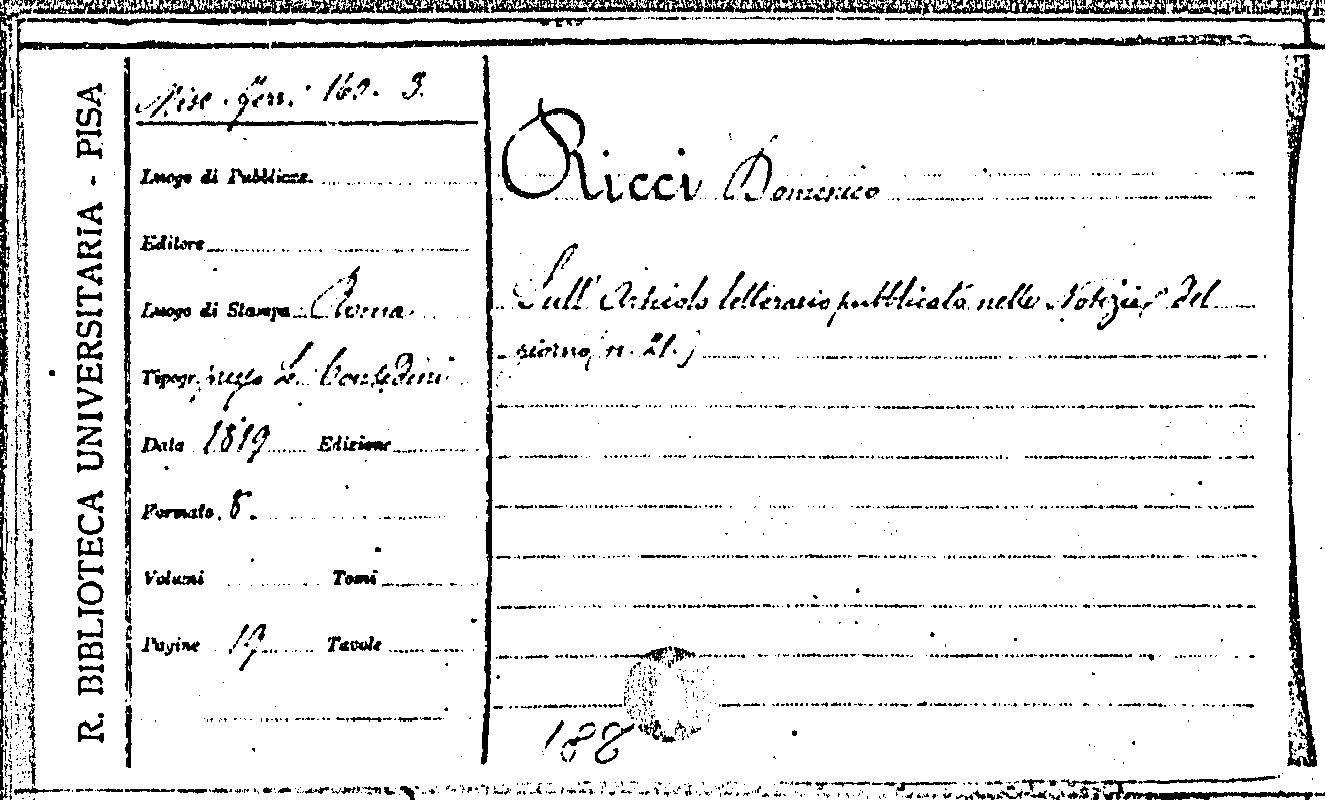 R. BIBLIOTECA UNIVERSITARIA - PISA
Misc. Gen. 160. 3.
Luogo di Pubblicaz.
Editore
Luogo di Stampa Roma
Tipogr. presso L. Contedini
Data 1819 Edizione
Formato 8.
Volumi Tomi
Pagine 19 Tavole
Ricci Domenico
Sull' Articolo letterario pubblicato nelle Notizie del
giorno (n. 21.)
188